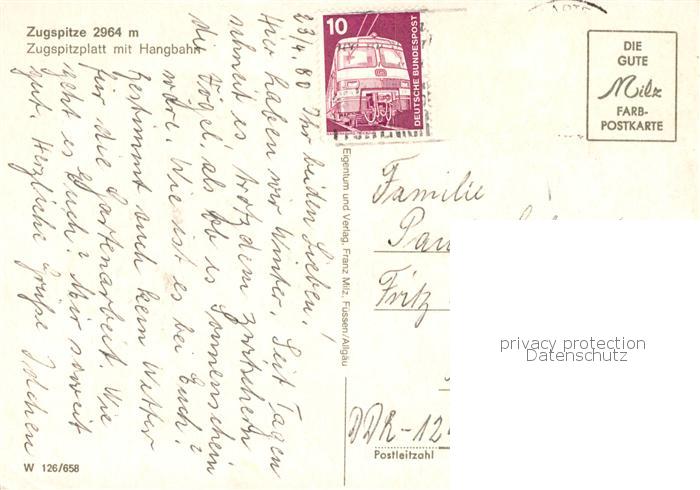 Zugspitze 2964 m
Zugspitzplatt mit Hangbahn
10
DEUTSCHE BUNDESPOST
DIE
GUTE
Milz
FARB-
POSTKARTE
23.4.80 Ihr beiden Lieben!
Hier haben wir Winter. Seit Tagen
schneit es, trotzdem zwitschern
die Vögel, als ob es Sonnenschein
wäre. Wie ist es bei Euch?
Bestimmt auch kein Wetter
für die Gartenarbeit. Wie
geht es Euch? Mir soweit
gut. Herzliche Grüße
Eigentum und Verlag, Franz Milz, Füssen/Allgäu
Familie
Fritz
privacy protection
Datenschutz
DDR-12
Postleitzahl
W 126/658